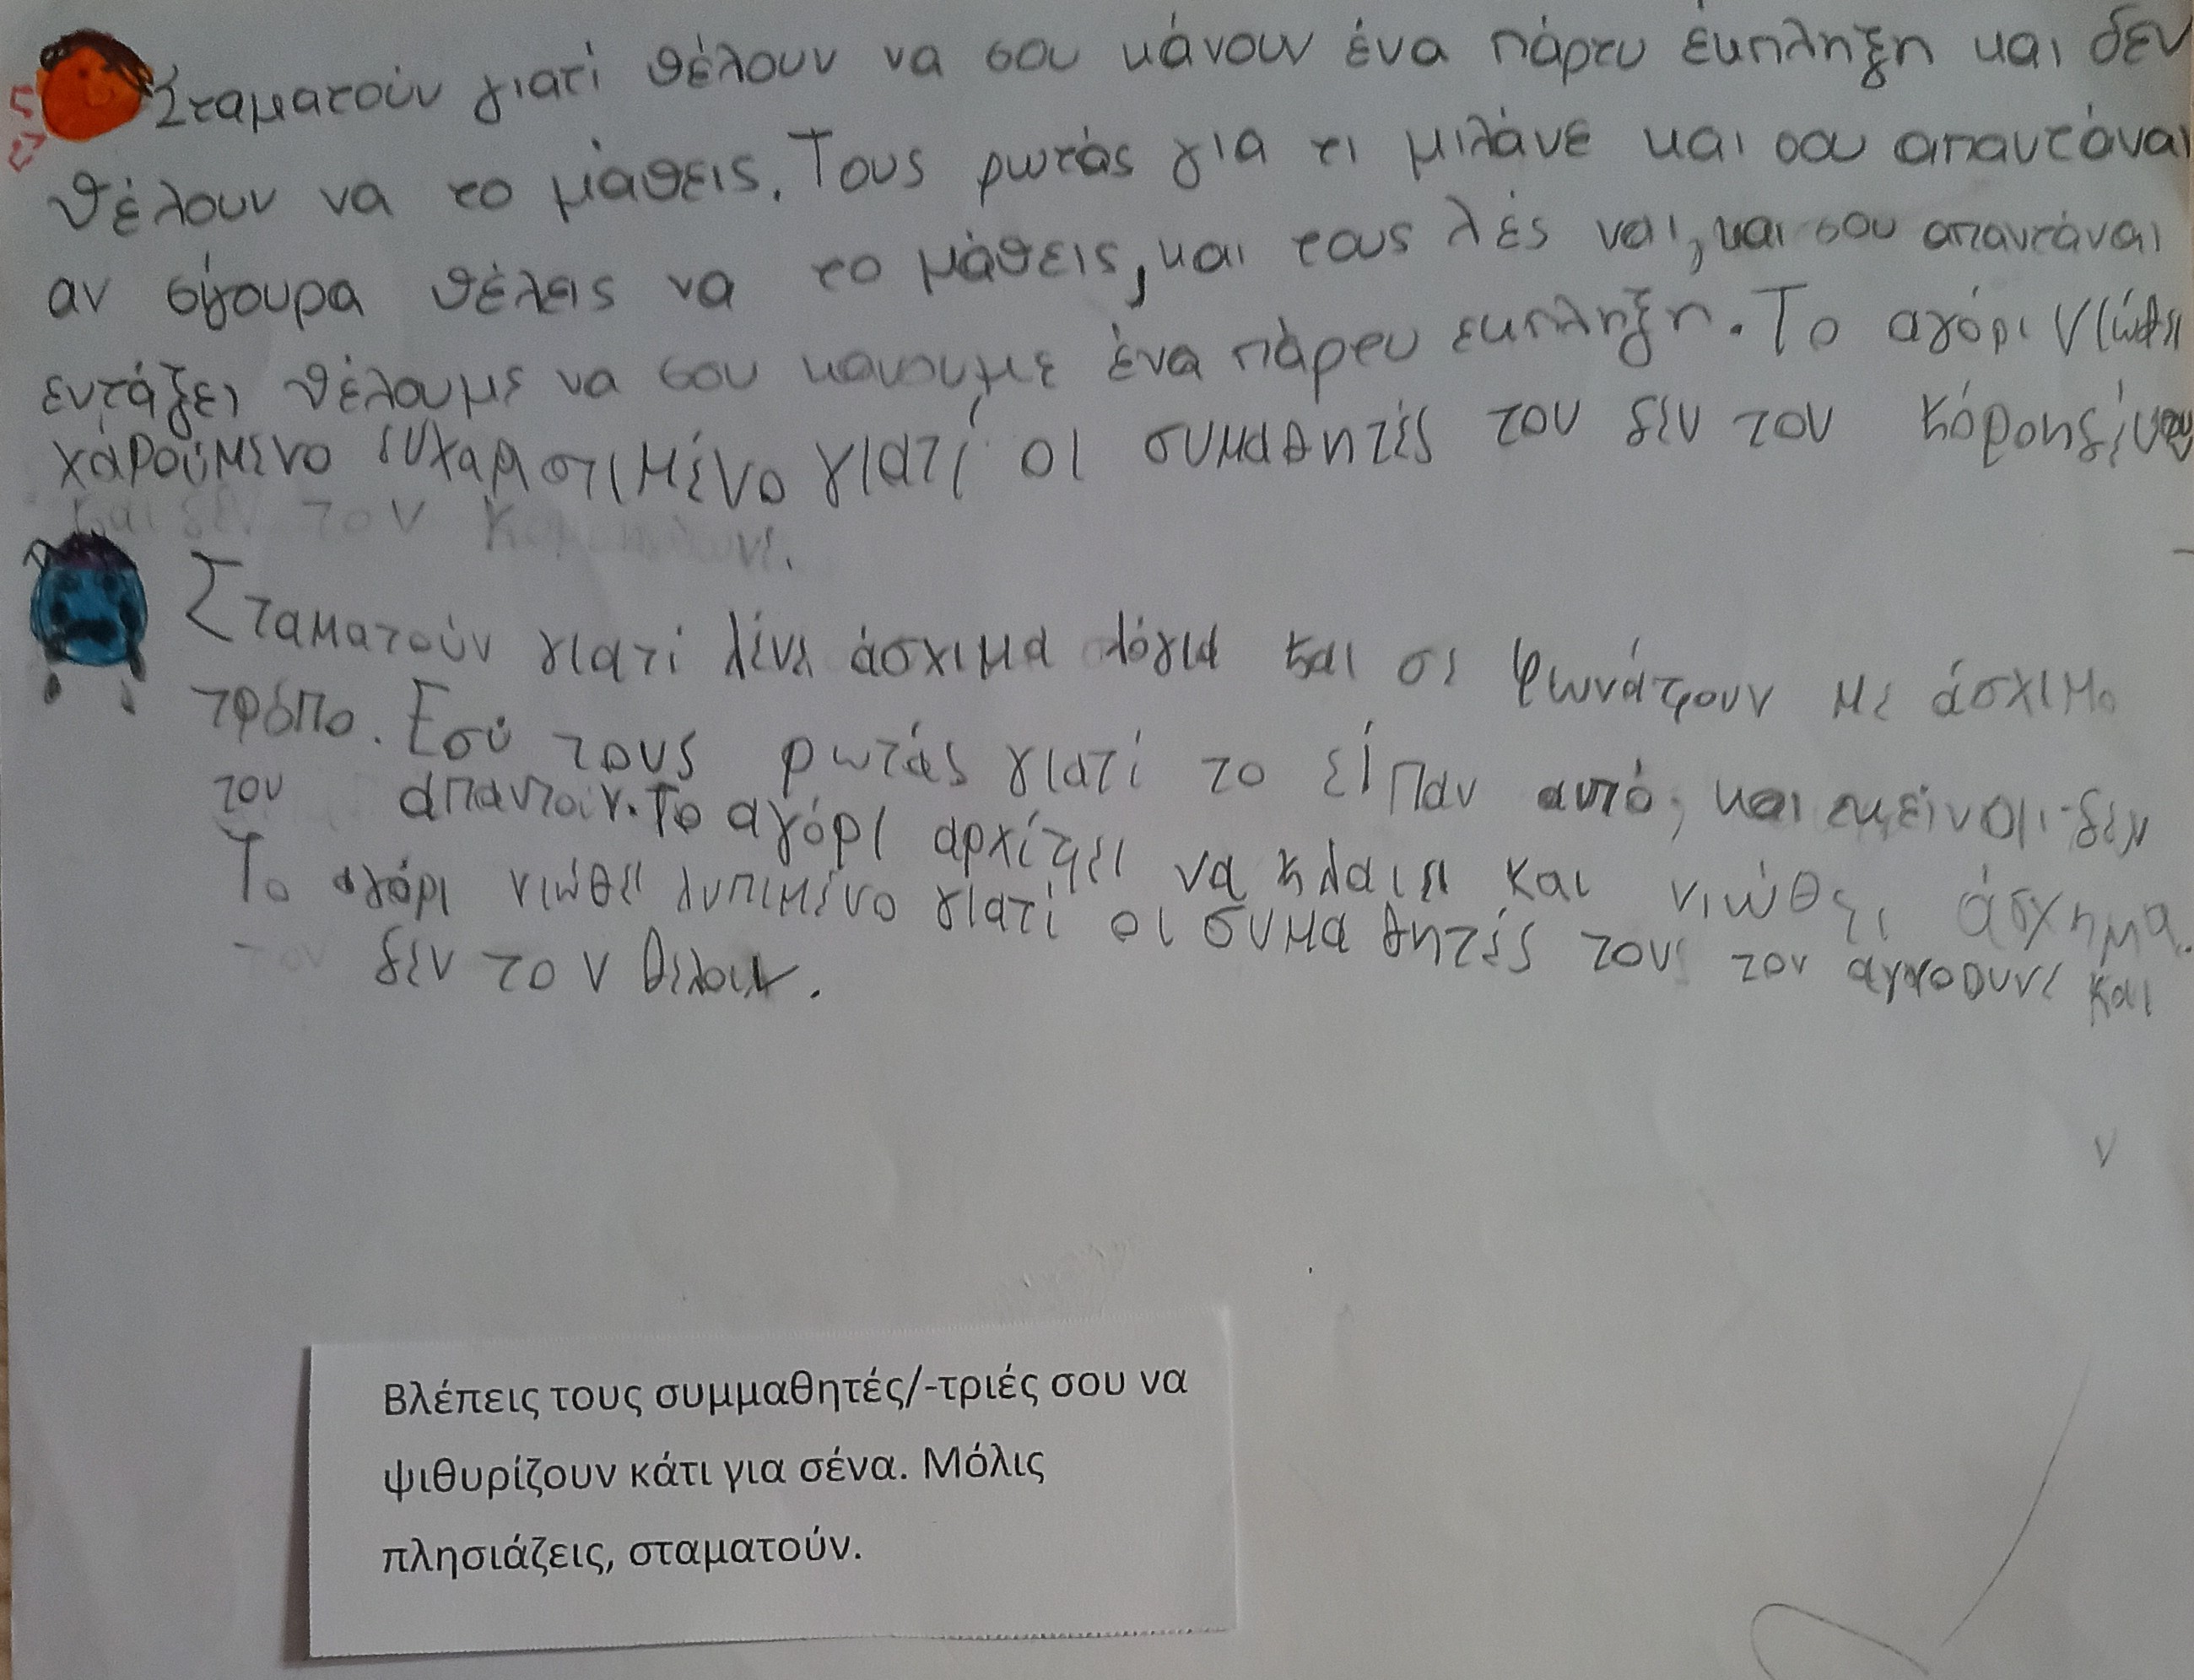 Σταματούν γιατί θέλουν να σου κάνουν ένα πάρτυ έκπληξη και δεν
θέλουν να το μάθεις. Τους ρωτάς για τι μιλάνε και σου απαντάναι
αν σίγουρα θέλεις να το μάθεις, και τους λές ναι, και σου απαντάναι
εντάξει θέλουμε να σου κανουμε ένα πάρτυ εκπληξη. Το αγόρι νιώθει
χαρούμενο ευχαριστιμένο γιατί οι συμαθητές του δεν τον κόροηδέυουν
και δεν τον
Σταματούν γιατί λένε άσχιμα λόγια και σε φωνάζουν με άσχιμο
τρόπο. Εσύ τους ρωτάς γιατί το είπαν αυτό, και εκείνοι δεν
του απαντούν. Το αγόρι αρχίζει να κλαίει και νιώθει άσχημα.
Το αγόρι νιώθει λυπιμένο γιατί οι συμαθητές τους τον αγνοουνε και
δεν τον θέλουν.
Βλέπεις τους συμμαθητές/-τριές σου να
ψιθυρίζουν κάτι για σένα. Μόλις
πλησιάζεις, σταματούν.